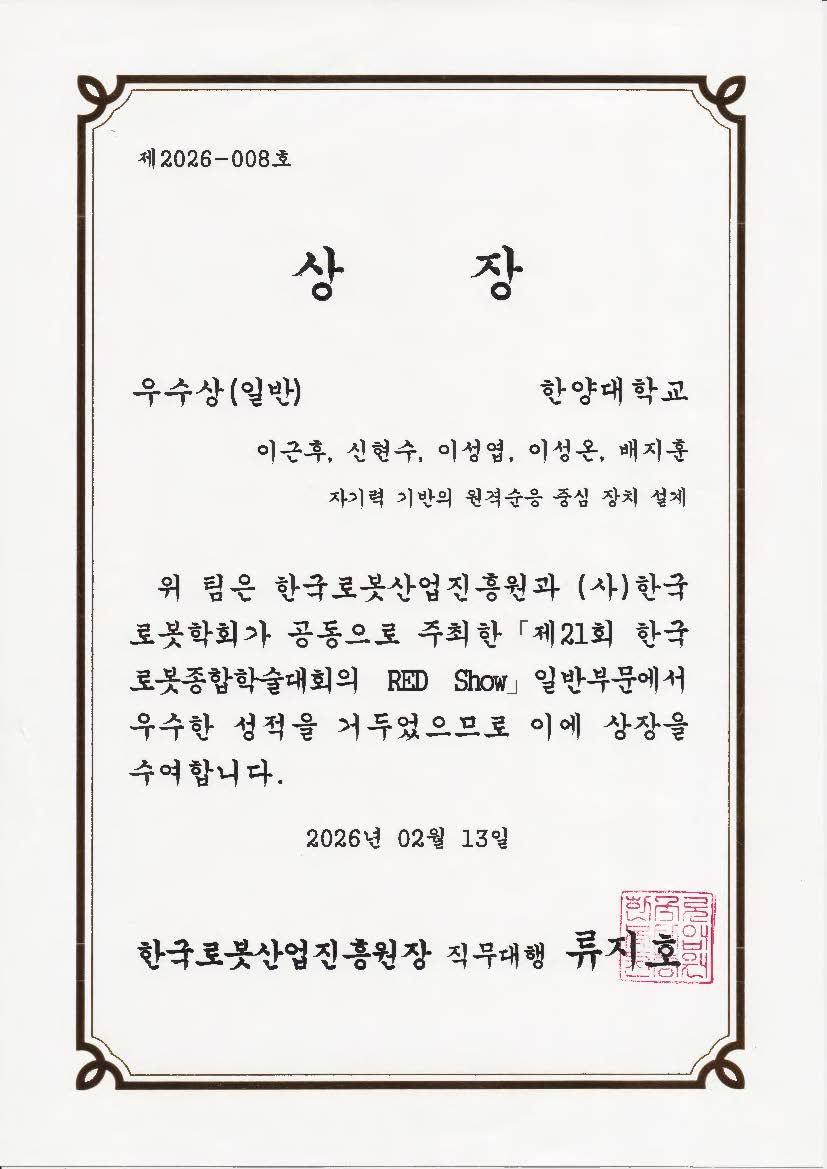 제2026-008호
상 장
우수상(일반) 한양대학교
이근후, 신현수, 이성엽, 이성온, 배지훈
자기력 기반의 원격순응 중심 장치 설계
위 팀은 한국로봇산업진흥원과 (사)한국
로봇학회가 공동으로 주최한 「제21회 한국
로봇종합학술대회의 RED Show」일반부문에서
우수한 성적을 거두었으므로 이에 상장을
수여합니다.
2026년 02월 13일
한국로봇산업진흥원장 직무대행 류지호